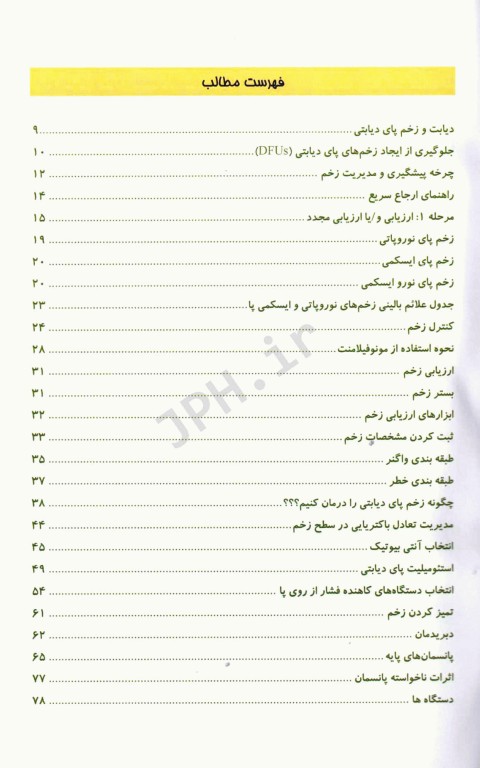 فهرست مطالب
دیابت و زخم پای دیابتی ........ ۹
جلوگیری از ایجاد زخم‌های پای دیابتی (DFUs) ........ ۱۰
چرخه پیشگیری و مدیریت زخم ........ ۱۲
راهنمای ارجاع سریع ........ ۱۴
مرحله ۱: ارزیابی و/یا ارزیابی مجدد ........ ۱۵
زخم پای نوروپاتی ........ ۱۹
زخم پای ایسکمی ........ ۲۰
زخم پای نورو ایسکمی ........ ۲۰
جدول علائم بالینی زخم‌های نوروپاتی و ایسکمی پا ........ ۲۳
کنترل زخم ........ ۲۴
نحوه استفاده از مونوفیلامنت ........ ۲۸
ارزیابی زخم ........ ۳۱
بستر زخم ........ ۳۱
ابزارهای ارزیابی زخم ........ ۳۲
ثبت کردن مشخصات زخم ........ ۳۳
طبقه بندی واگنر ........ ۳۵
طبقه بندی خطر ........ ۳۷
چگونه زخم پای دیابتی را درمان کنیم؟؟؟ ........ ۳۸
مدیریت تعادل باکتریایی در سطح زخم ........ ۴۴
انتخاب آنتی بیوتیک ........ ۴۵
استئومیلیت پای دیابتی ........ ۴۹
انتخاب دستگاه‌های کاهنده فشار از روی پا ........ ۵۴
تمیز کردن زخم ........ ۶۱
دبریدمان ........ ۶۲
پانسمان‌های پایه ........ ۶۵
اثرات ناخواسته پانسمان ........ ۷۷
دستگاه ها ........ ۷۸
JPH.ir